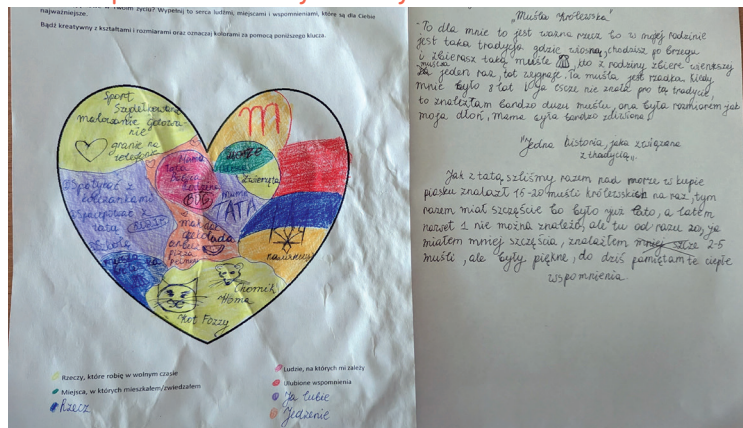 najważniejsze.
w Twoim życiu? Wypełnij to serca ludźmi, miejscami i wspomnieniami, które są dla Ciebie
Bądź kreatywny z kształtami i rozmiarami oraz oznaczaj kolorami za pomocą poniższego klucza.
Sport
Szydełkowanie
malowanie gotowa-
nie
granie na
telefonie
m
morze
Zwierzęta
Mama
Tata
Mama
TATA
Spotykać z
koleżankami
Szkoła
czekolada
pizza
Chomik
Homa
Kot Fozzy
Rzeczy, które robię w wolnym czasie
Miejsca, w których mieszkałem/zwiedzałem
Rzecz
Ludzie, na których mi zależy
Ulubione wspomnienia
Ja lubię
Jedzenie
"Muśla królewska"
- To dla mnie to jest ważna rzecz bo w mojej rodzinie
jest taka tradycja gdzie wiosną, chodzisz po brzegu
i zbierasz taką muśle, kto z rodziny zbiere wienkszy
za jeden raz, tot wygraje. Ta muśla jest rzadka. Kiedy
mnie było 8 lat i ja escze nie znała pro tą tradycie,
to znalazłam bandzo dużu muślu, ona była rozmiorem jak
moja dłoń, mama była bandzo zdiwiona
"Jedna historia, jaka związana
z tradycją"
Jak z tatą szliśmy razem nad morze w kupie
piasku znalazł 15-20 muśli królewskich na raz, tym
razem miał szczęście bo było już lato, a latem
nawet 1 nie można znaleźć, ale tu od razu 20, ja
miałem mniej szczęścia, znalazłem 2-5
muśli, ale były piękne, do dziś pamiętam te ciepłe
wspomnienia